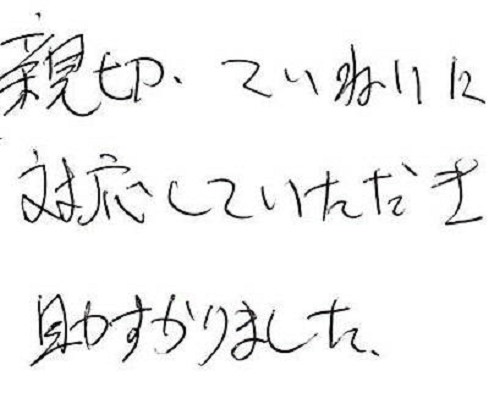 親切、ていねいに
対応していただき
助すかりました、